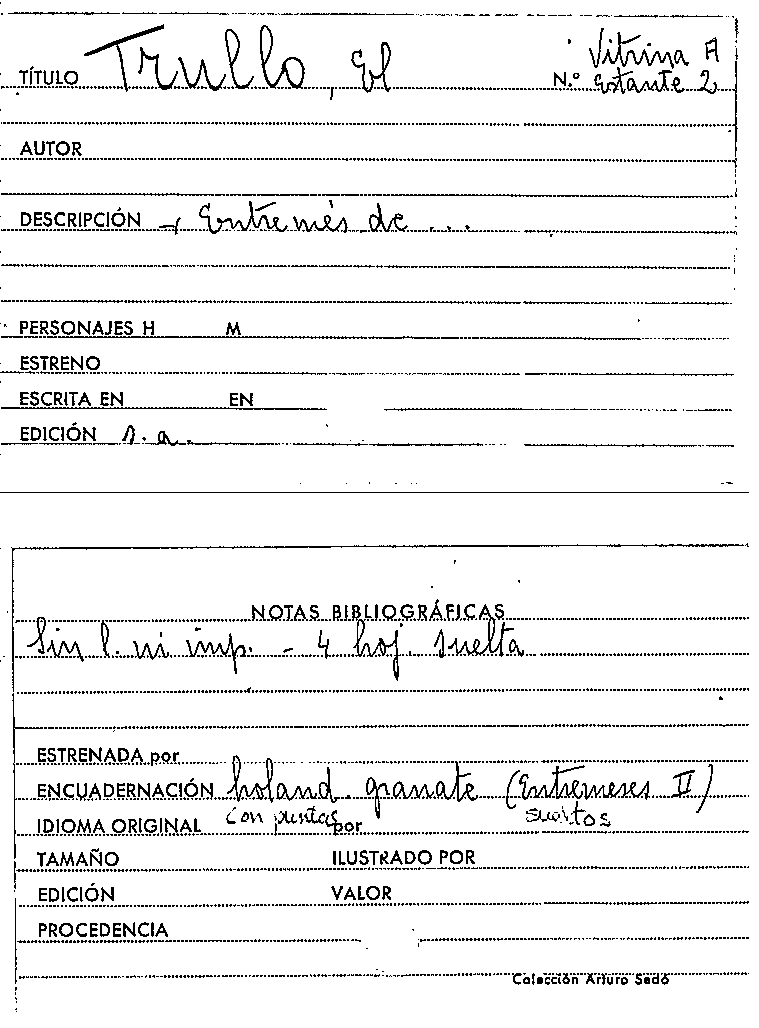 Vitrina A
TÍTULO Trullo, El N.º Estante 2
AUTOR
DESCRIPCIÓN Entremés de ...
PERSONAJES H M
ESTRENO
ESCRITA EN EN
EDICIÓN s.a.
NOTAS BIBLIOGRÁFICAS
Sin l. ni imp. - 4 hoj. suelta
ESTRENADA por
ENCUADERNACIÓN holand. granate (Entremeses II)
IDIOMA ORIGINAL con puntas por sueltos
TAMAÑO ILUSTRADO POR
EDICIÓN VALOR
PROCEDENCIA
Colección Arturo Sedó